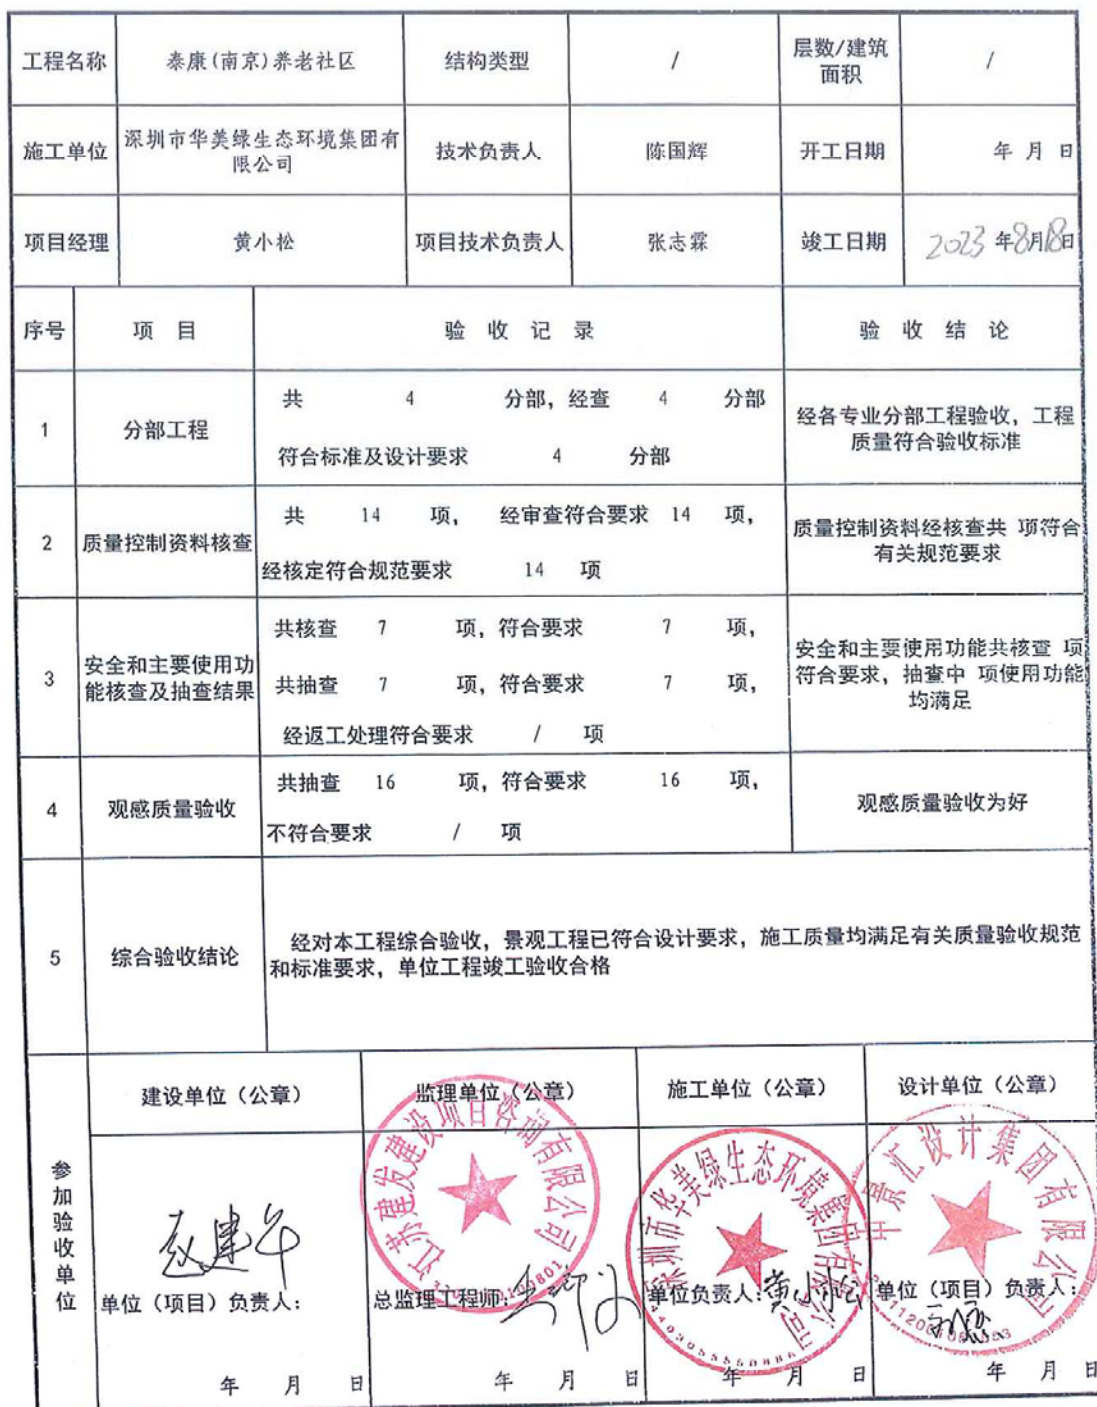 工程名称 泰康(南京)养老社区 结构类型 / 层数/建筑
面积 /
施工单位 深圳市华美绿生态环境集团有
限公司 技术负责人 陈国辉 开工日期 年 月 日
项目经理 黄小松 项目技术负责人 张志霖 竣工日期 2023 年8月18日
序号 项 目 验 收 记 录 验 收 结 论
1 分部工程
共 4 分部，经查 4 分部
符合标准及设计要求 4 分部
经各专业分部工程验收，工程
质量符合验收标准
2 质量控制资料核查
共 14 项， 经审查符合要求 14 项，
经核定符合规范要求 14 项
质量控制资料经核查共 项符合
有关规范要求
3 安全和主要使用功
能核查及抽查结果
共核查 7 项，符合要求 7 项，
共抽查 7 项，符合要求 7 项，
经返工处理符合要求 / 项
安全和主要使用功能共核查 项
符合要求，抽查中 项使用功能
均满足
4 观感质量验收
共抽查 16 项，符合要求 16 项，
不符合要求 / 项
观感质量验收为好
5 综合验收结论
经对本工程综合验收，景观工程已符合设计要求，施工质量均满足有关质量验收规范
和标准要求，单位工程竣工验收合格
参加验收单位
建设单位（公章） 监理单位（公章） 施工单位（公章） 设计单位（公章）
江苏建发建设项目咨询有限公司
深圳市华美绿生态环境集团有限公司
中景汇设计集团有限公司
赵建华
单位（项目）负责人： 总监理工程师： 单位负责人：黄小松 单位（项目）负责人：
年 月 日 年 月 日 年 月 日 年 月 日